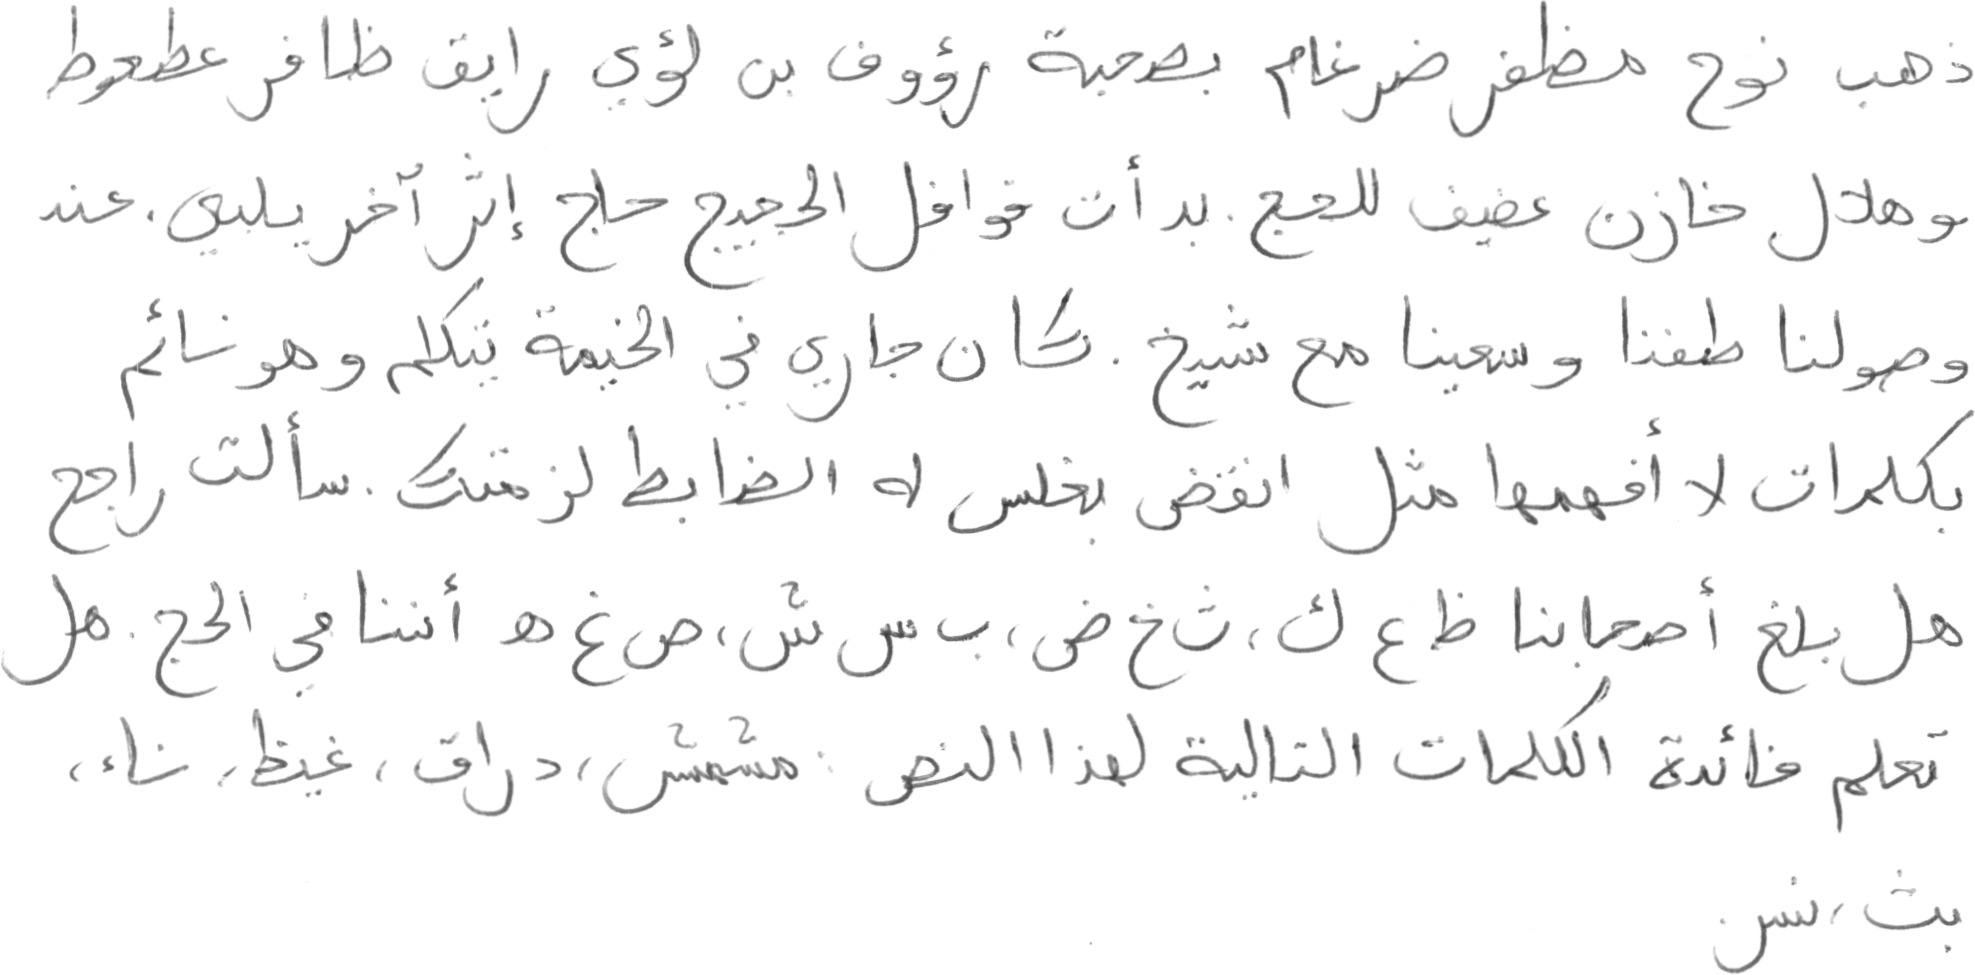 ذهب نوح مظفر ضرغام بصحبة رؤوف بن لؤي رايق ظافر عطعوط
وهلال خازن عفيف للحج. بدأت قوافل الحجيج حاج إثر آخر يلبي. عند
وصولنا طفنا وسعينا مع شيخ. كان جاري في الخيمة يتكلم وهو نائم
بكلمات لا أفهمها مثل انقض بغلس له الضابط لزمتك. سألت راجح
هل بلغ أصحابنا ظ ع ك، ث خ ض، ب س ش، ص غ ه أننا في الحج. هل
تعلم فائدة الكلمات التالية لهذا النص: مشمش، دراق، غيظ، ناء،
بث، نس